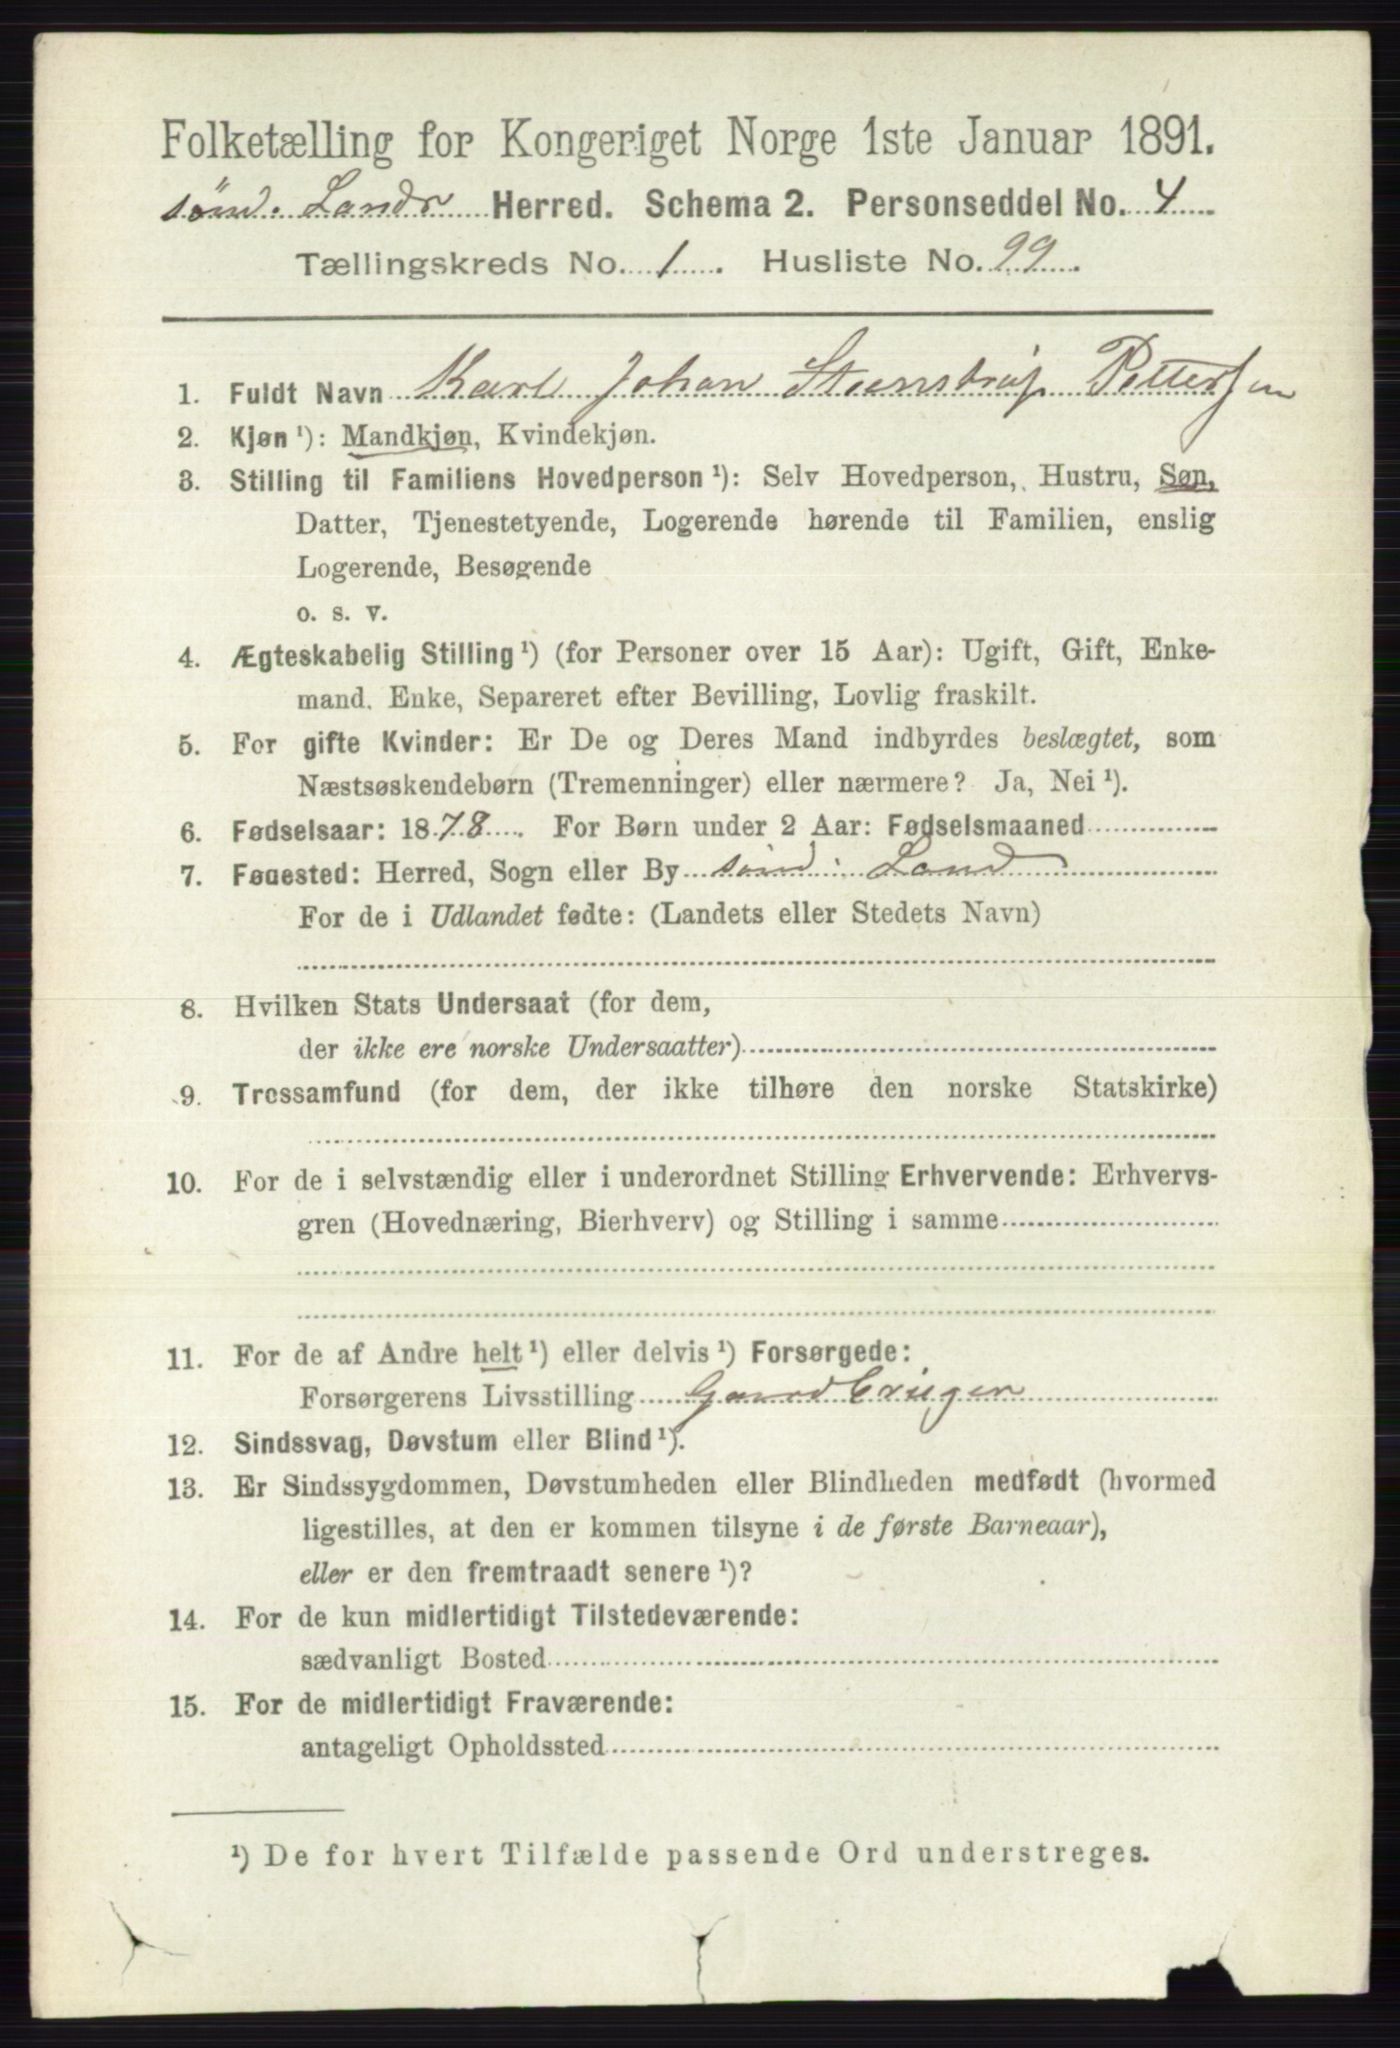 Folketælling for Kongeriget Norge 1ste Januar 1891.
sönd. Lands Herred. Schema 2. Personseddel No. 4
Tællingskreds No. 1. Husliste No. 99.
1. Fuldt Navn Karl Johan Steenstrup Pettersen
2. Kjøn ¹): Mandkjøn, Kvindekjøn.
3. Stilling til Familiens Hovedperson ¹): Selv Hovedperson, Hustru, Søn,
Datter, Tjenestetyende, Logerende hørende til Familien, enslig
Logerende, Besøgende
o. s. v.
4. Ægteskabelig Stilling ¹) (for Personer over 15 Aar): Ugift, Gift, Enke-
mand, Enke, Separeret efter Bevilling, Lovlig fraskilt.
5. For gifte Kvinder: Er De og Deres Mand indbyrdes beslægtet, som
Næstsøskendebørn (Tremenninger) eller nærmere? Ja, Nei ¹).
6. Fødselsaar: 1878. For Børn under 2 Aar: Fødselsmaaned
7. Føuested: Herred, Sogn eller By sönd: Land
For de i Udlandet fødte: (Landets eller Stedets Navn)
8. Hvilken Stats Undersaat (for dem,
der ikke ere norske Undersaatter)
9. Trossamfund (for dem, der ikke tilhøre den norske Statskirke)
10. For de i selvstændig eller i underordnet Stilling Erhvervende: Erhvervs-
gren (Hovednæring, Bierhverv) og Stilling i samme
11. For de af Andre helt ¹) eller delvis ¹) Forsørgede:
Forsørgerens Livsstilling Gaardbruger
12. Sindssvag, Døvstum eller Blind ¹).
13. Er Sindssygdommen, Døvstumheden eller Blindheden medfødt (hvormed
ligestilles, at den er kommen tilsyne i de første Barneaar),
eller er den fremtraadt senere ¹)?
14. For de kun midlertidigt Tilstedeværende:
sædvanligt Bosted
15. For de midlertidigt Fraværende:
antageligt Opholdssted
¹) De for hvert Tilfælde passende Ord understreges.